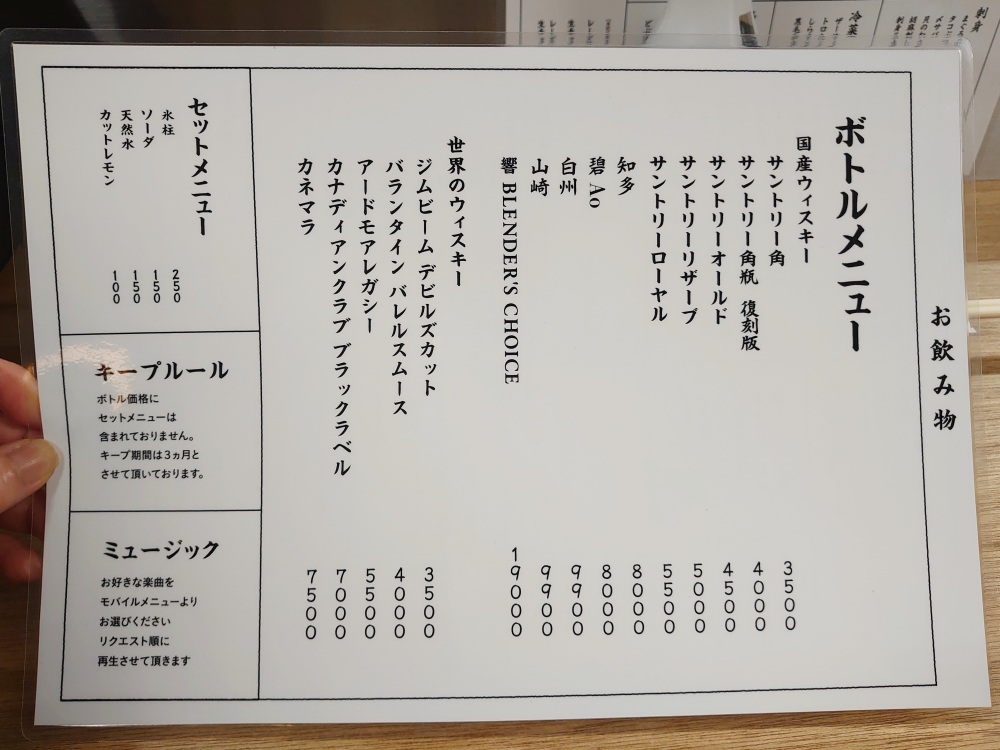 お飲み物
ボトルメニュー
国産ウィスキー
サントリー角 3500
サントリー角瓶 復刻版 4000
サントリーオールド 4500
サントリーリザーブ 5000
サントリーローヤル 5500
知多 8000
碧 Ao 8000
白州 9900
山崎 9900
響 BLENDER'S CHOICE 19000
世界のウィスキー
ジムビーム デビルズカット 3500
バランタイン バレルスムース 4000
アードモアレガシー 5500
カナディアンクラブ ブラックラベル 7000
カネマラ 7500
セットメニュー
氷柱 250
ソーダ 150
天然水 150
カットレモン 100
キープルール
ボトル価格に
セットメニューは
含まれておりません。
キープ期間は3ヵ月と
させて頂いております。
ミュージック
お好きな楽曲を
モバイルメニューより
お選びください
リクエスト順に
再生させて頂きます
刺身
冷菜